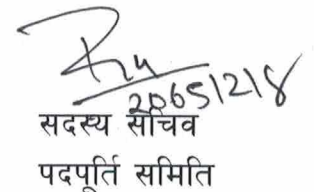 2065/2/8
सदस्य सचिव
पदपूर्ति समिति